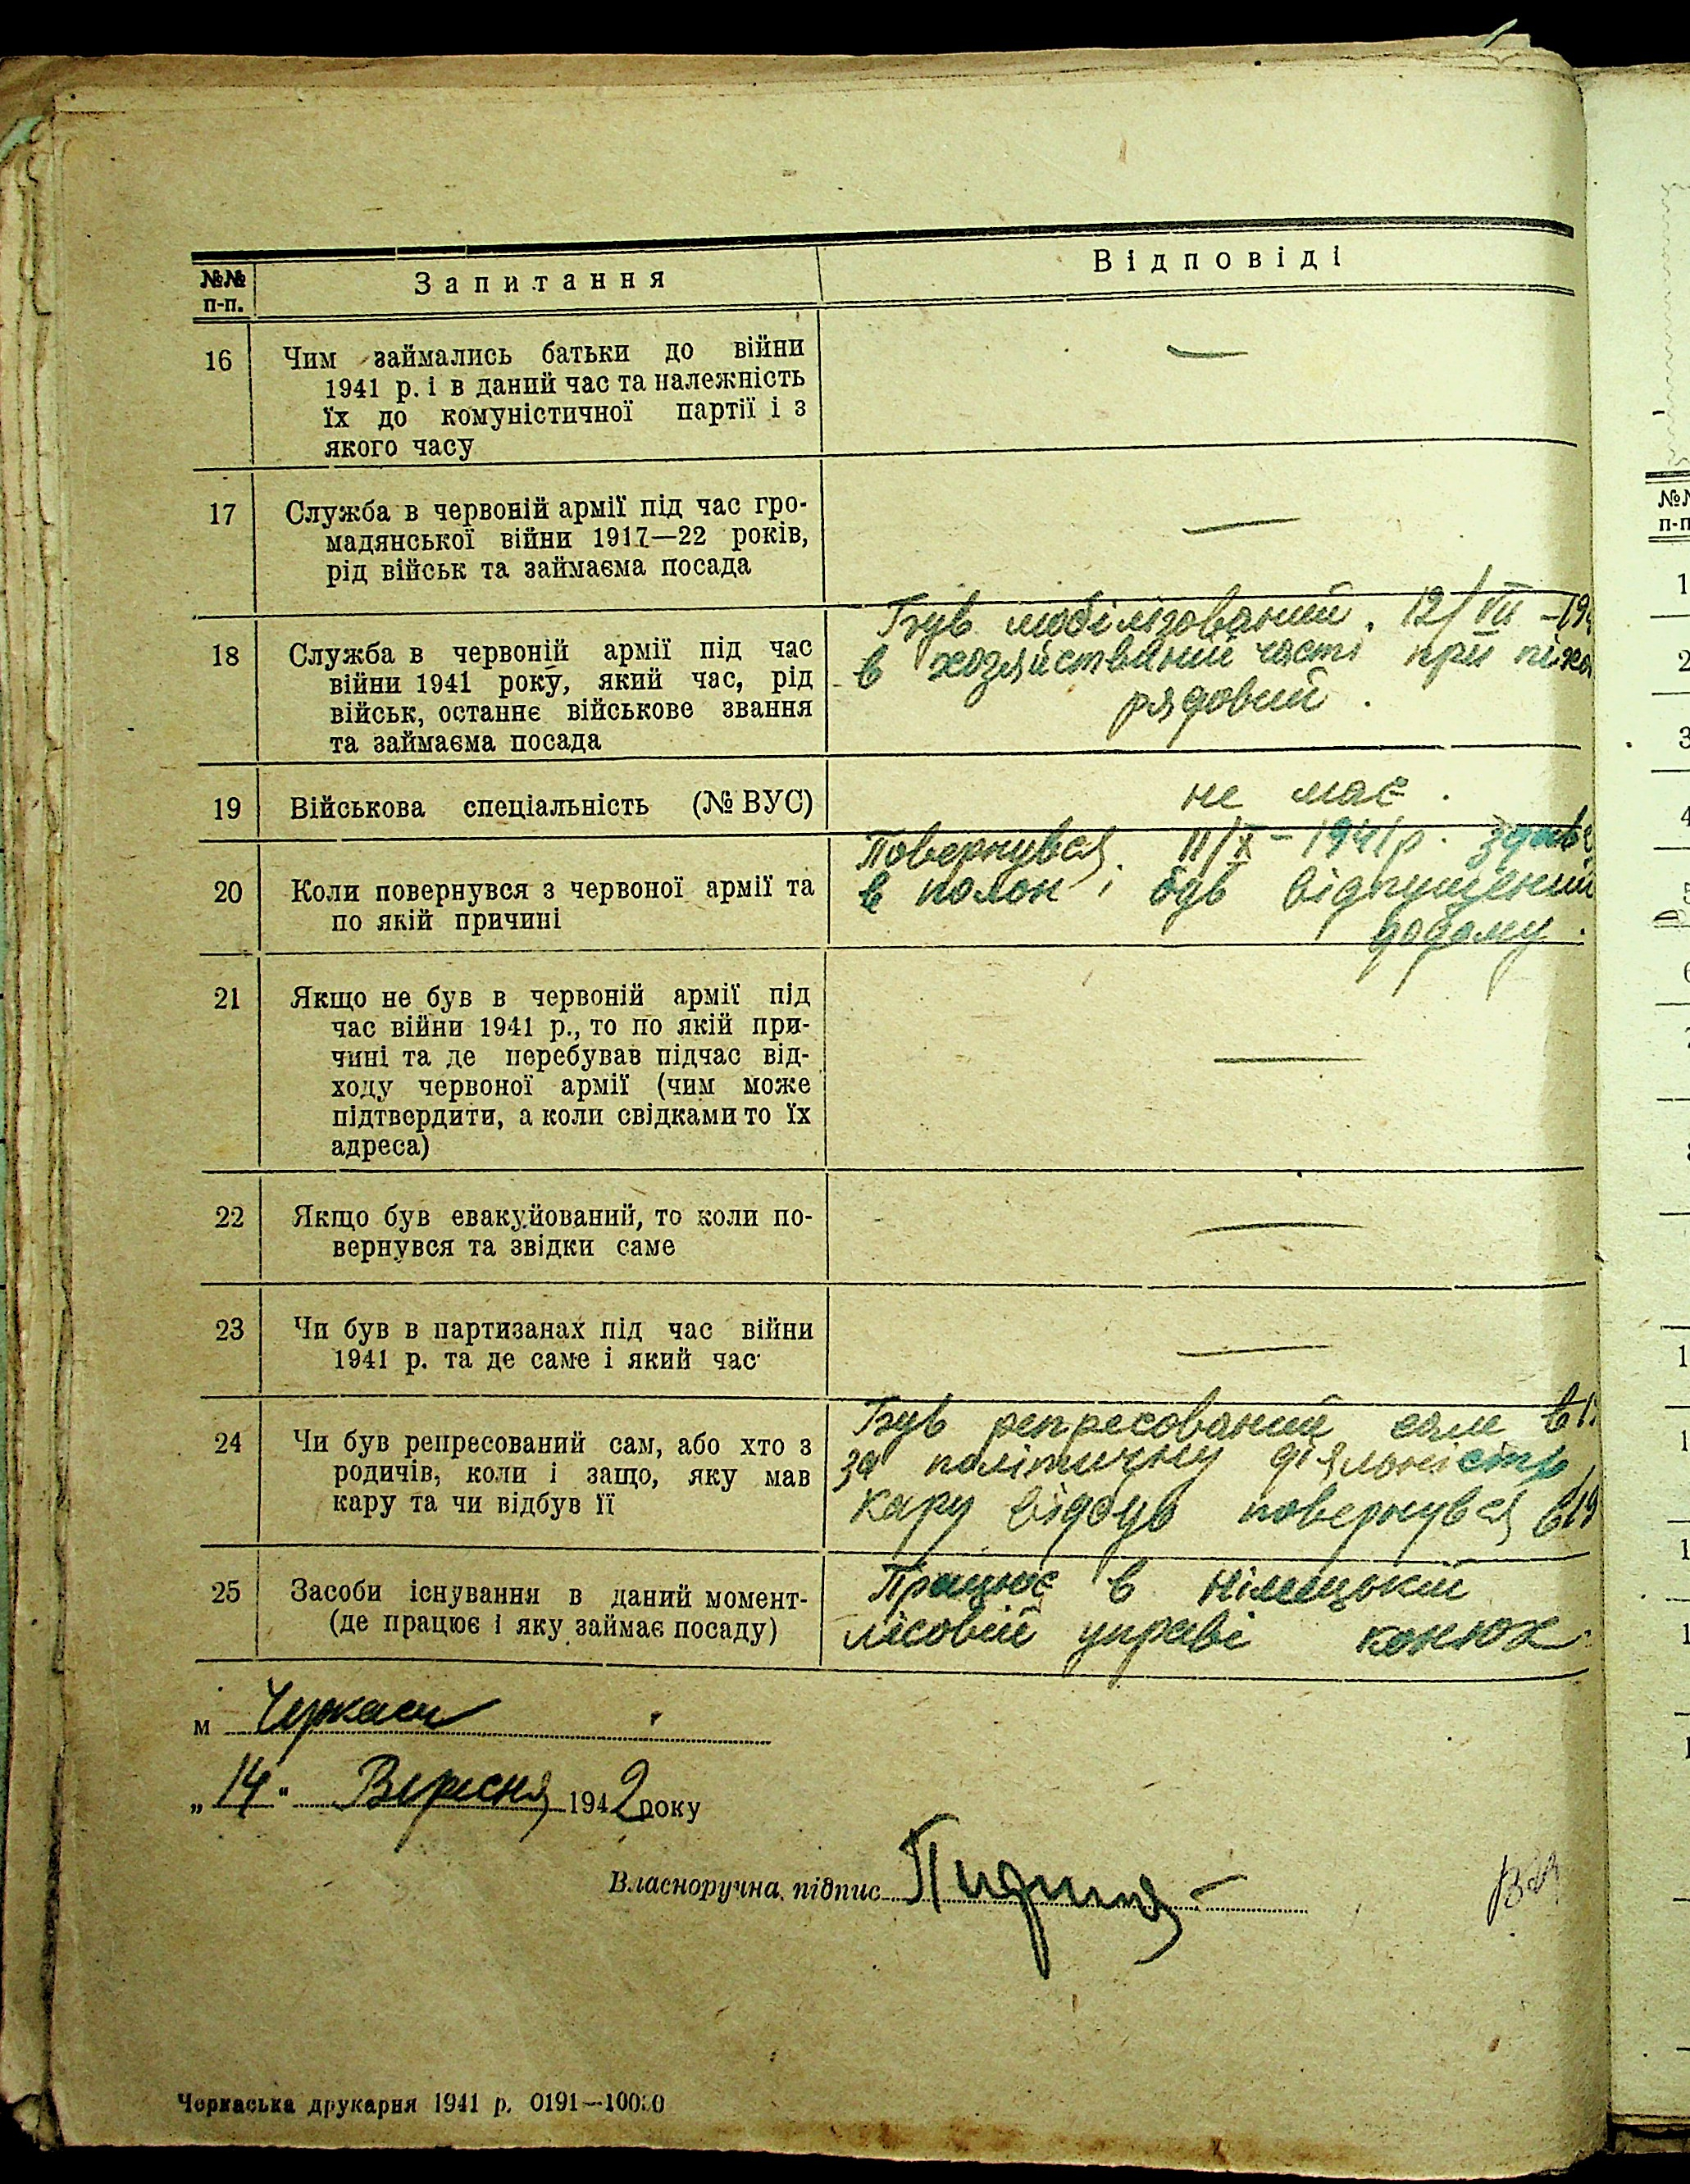 №№ п-п.
Запитання
Відповіді
16
Чим займались батьки до війни
1941 р. і в даний час та належність
їх до комуністичної партії і з
якого часу
—
17
Служба в червоній армії під час гро-
мадянської війни 1917—22 років,
рід військ та займаєма посада
—
18
Служба в червоній армії під час
війни 1941 року, який час, рід
військ, останнє військове звання
та займаєма посада
Був мобілізований. 12/VII – 19
в хозяйствений часті при піхо
рядовий.
19
Військова спеціальність (№ ВУС)
не має.
20
Коли повернувся з червоної армії та
по якій причині
Повернувся. 11/X – 1941 р. здавс
в полон і був відпущений
додому.
21
Якщо не був в червоній армії під
час війни 1941 р., то по якій при-
чині та де перебував підчас від-
ходу червоної армії (чим може
підтвердити, а коли свідками то їх
адреса)
—
22
Якщо був евакуйований, то коли по-
вернувся та звідки саме
—
23
Чи був в партизанах під час війни
1941 р. та де саме і який час
—
24
Чи був репресований сам, або хто з
родичів, коли і защо, яку мав
кару та чи відбув її
Був репресований сам в 1
за політичну діяльність,
кару відбув повернувся в 19
25
Засоби існування в даний момент-
(де працює і яку займає посаду)
Працює в Німецькій
лісовій управі конюх.
м Черкаси
„14“ Вересня 1942 року
Власноручна підпис
Черкаська друкарня 1941 р. 0191—10000
№№
п-п